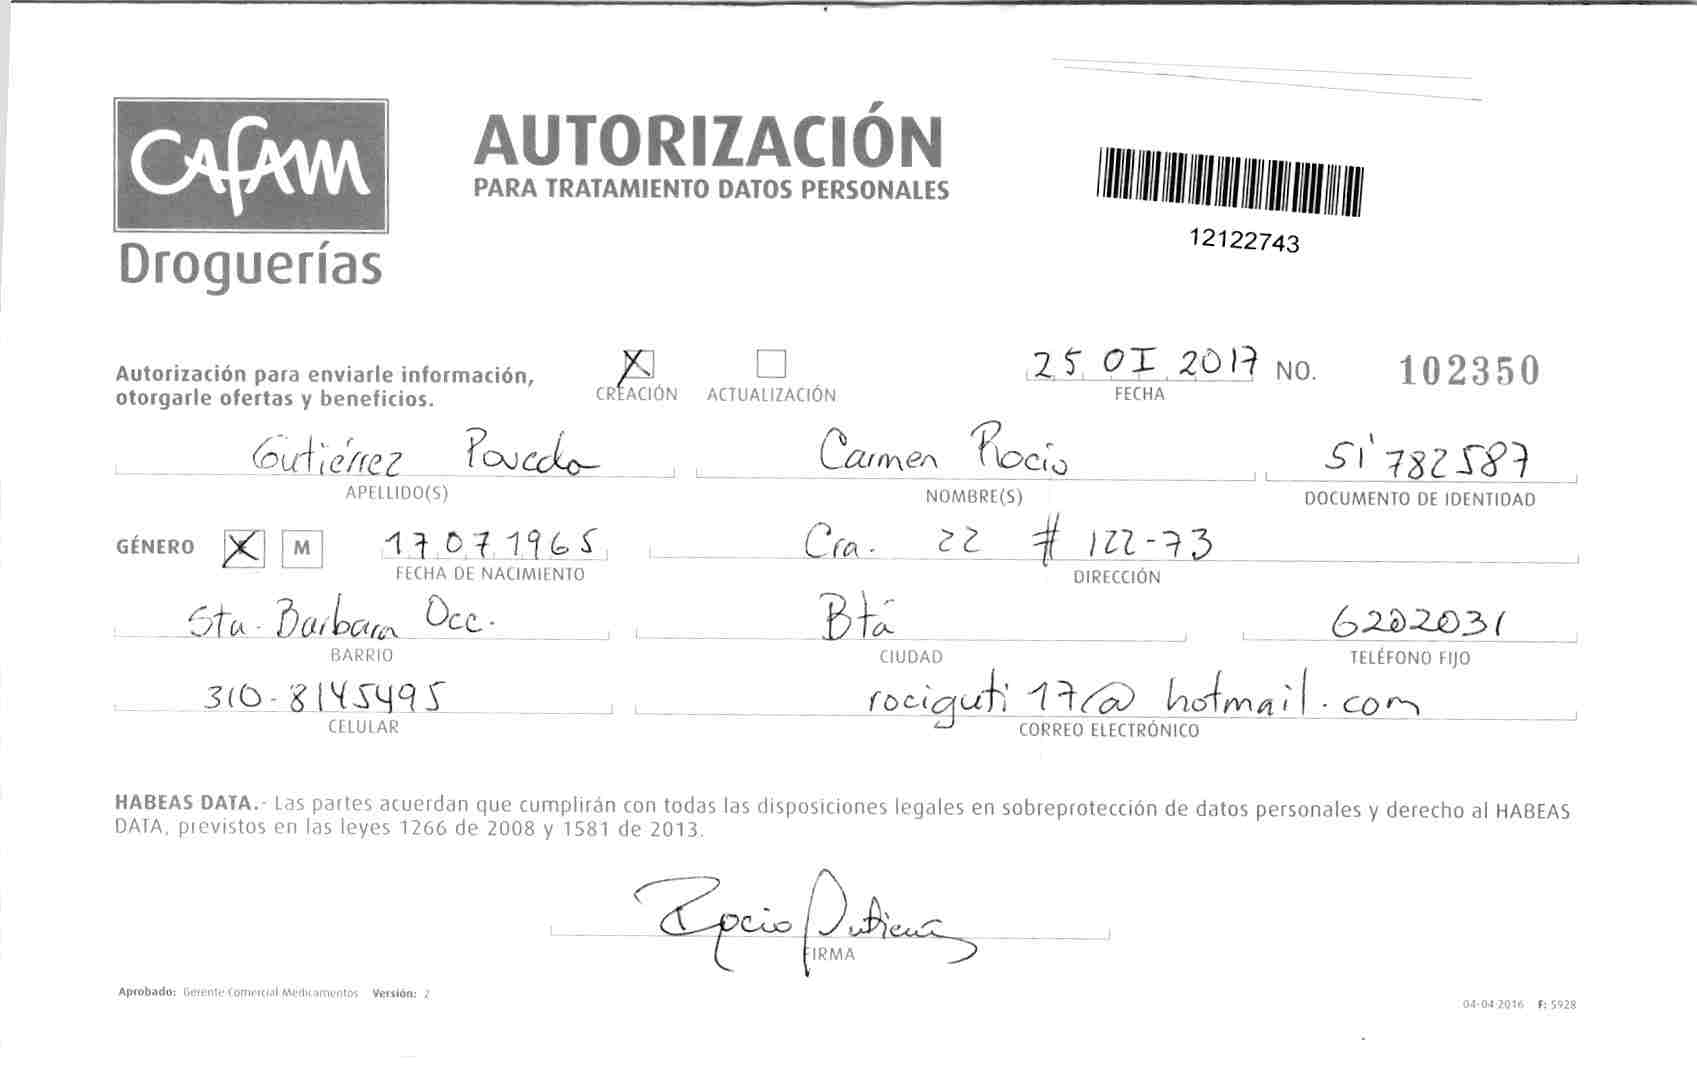 CAFAM
Droguerías
AUTORIZACIÓN
PARA TRATAMIENTO DATOS PERSONALES
12122743
Autorización para enviarle información,
otorgarle ofertas y beneficios.
X
CREACIÓN ACTUALIZACIÓN
25 01 2017 NO. 102350
FECHA
Gutiérrez Poveda Carmen Rocio 51'782587
APELLIDO(S) NOMBRE(S) DOCUMENTO DE IDENTIDAD
GÉNERO X M 17 07 1965 Cra. 22 # 122-73
FECHA DE NACIMIENTO DIRECCIÓN
Sta. Barbara Occ. Btá 6202031
BARRIO CIUDAD TELÉFONO FIJO
310-8145495 rociguti17@hotmail.com
CELULAR CORREO ELECTRÓNICO
HABEAS DATA.- Las partes acuerdan que cumplirán con todas las disposiciones legales en sobreprotección de datos personales y derecho al HABEAS
DATA, previstos en las leyes 1266 de 2008 y 1581 de 2013.
Rocio Gutierrez
FIRMA
Aprobado: Gerente Comercial Medicamentos Versión: 2
04-04-2016 F: 5928